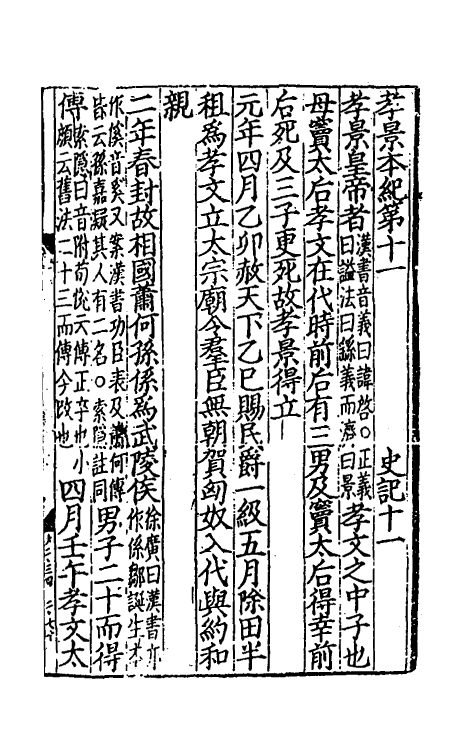 孝景本紀第十一　　史記十一
孝景皇帝者漢書音義曰諱啓○正義曰謚法曰繇義而濟曰景孝文之中子也
母竇太后孝文在代時前后有三男及竇太后得幸前
后死及三子更死故孝景得立
元年四月乙卯赦天下乙巳賜民爵一級五月除田半
租為孝文立太宗廟令羣臣無朝賀匈奴入代與約和
親
二年春封故相國蕭何孫係為武陵侯徐廣曰漢書亦作係鄒誕生本
作傒音奚又案漢書功臣表及蕭何傳皆云孫嘉疑其人有二名○索隱註同男子二十而得
傅索隱曰音附荀悅云傅正卒也小顏云舊法二十三而傅今改也四月壬午孝文太